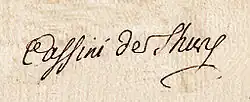 Cassini de Thury